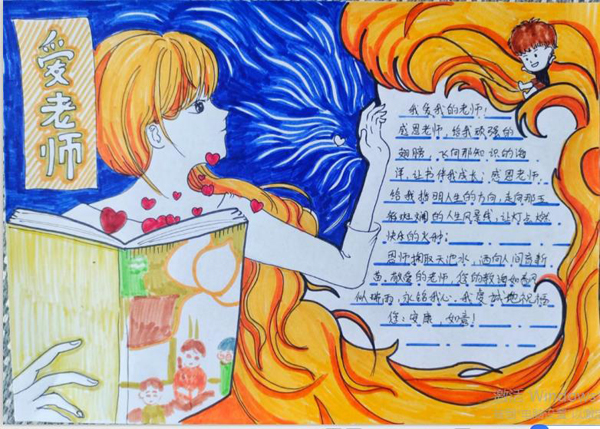 爱老师
我爱我的老师!
感恩老师,给我顽强的
翅膀,飞向那知识的海
洋,让书伴我成长;感恩老师,
给我指明人生的方向,走向那五
彩斑斓的人生风景线,让灯点燃
快乐的火种;
恩师掬取天池水,洒向人间育新
苗,敬爱的老师,您的教诲如春风
似雨,永铭我心,我虔诚地祝福
您:安康,如意!
Windows